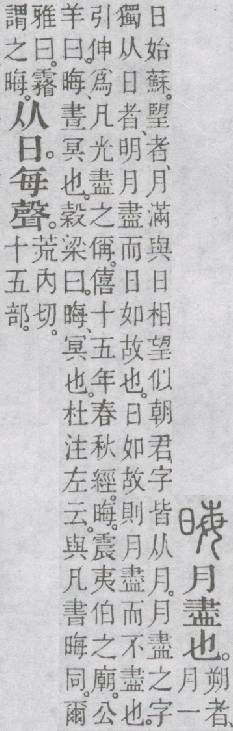 晦
月盡也。
朔者、
月一
日始蘇。朢者、月滿與日相望似朝君。字皆从月。月盡之字
獨从日者、明月盡而日如故也。日如故則月盡而不盡也。
引伸爲凡光盡之偁。僖十五年春秋經。晦。震夷伯之廟。公
羊曰。晦、晝冥也。穀梁曰。晦、冥也。杜注左云。與凡書晦同。爾
雅曰。霧
謂之晦。
从日。每聲。
荒內切。
十五部。